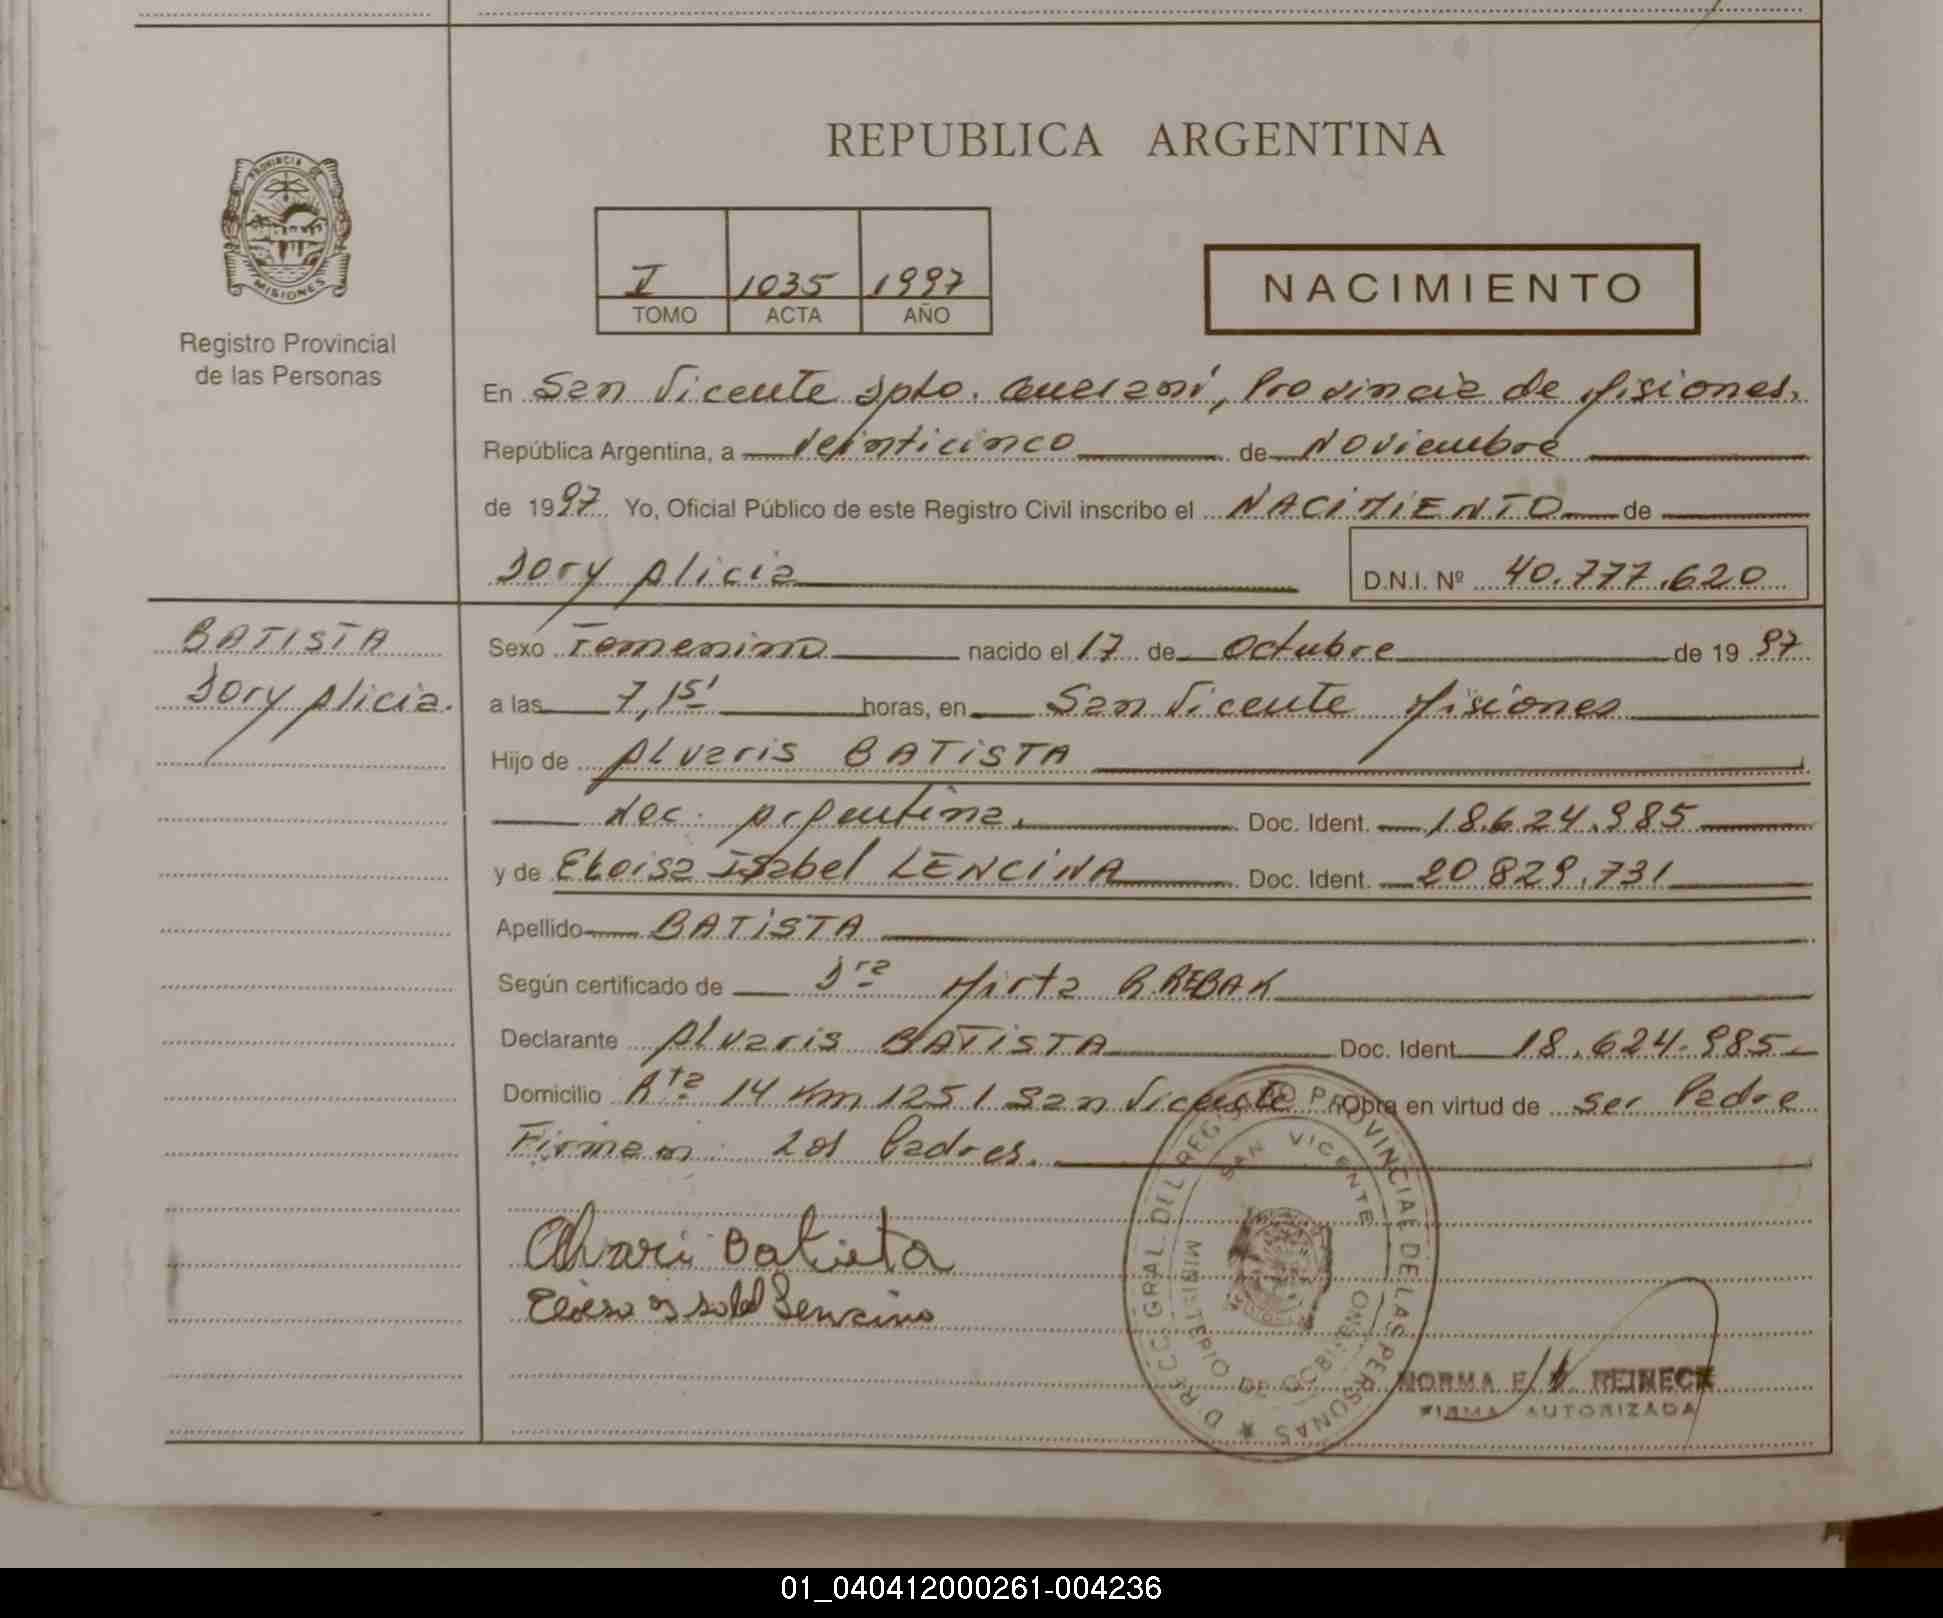 REPUBLICA ARGENTINA
PROVINCIA DE
MISIONES
Registro Provincial
de las Personas
V 1035 1997
TOMO ACTA AÑO
NACIMIENTO
En San Vicente Dpto. Guaraní, Provincia de Misiones.
República Argentina, a veinticinco de Noviembre
de 1997 Yo, Oficial Público de este Registro Civil inscribo el NACIMIENTO de
Dory Alicia
D.N.I. Nº 40.777.620
BATISTA
Dory Alicia.
Sexo Femenino nacido el 17 de Octubre de 1997
a las 7,15' horas, en San Vicente Misiones
Hijo de Alvaris BATISTA
Nac. Argentina. Doc. Ident. 18.624.985
y de Eloisa Isabel LENCINA Doc. Ident. 20.829.731
Apellido BATISTA
Según certificado de Dra Mirta R. REBAK
Declarante Alvaris BATISTA Doc. Ident. 18.624.985
Domicilio Rta 14 Km 1251 San Vicente Obra en virtud de ser Padre
Firman: Los Padres.
Alvari Batista
DIRECC. GRAL. DEL REGISTRO PROVINCIAL DE LAS PERSONAS
SAN VICENTE
MINISTERIO DE GOBIERNO
NORMA E. REINECK
FIRMA AUTORIZADA
01_040412000261-004236